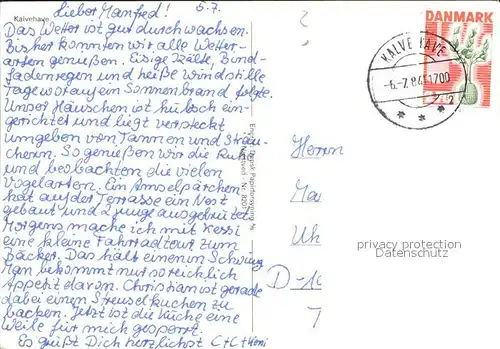 Kalvehave
Lieber Manfred! 5.7.
Das Wetter ist gut durchwachsen.
Bisher konnten wir alle Wetter-
arten genießen. Eisige Kälte, Bind-
fadenregen und heiße windstille
Tage worauf ein Sonnenbrand folgte.
Unser Häuschen ist hübsch ein-
gerichtet und liegt versteckt
umgeben von Tannen und Sträu-
chern. So genießen wir die Ruhe
und beobachten die vielen
Vogelarten. Ein Amselpärchen
hat auf der Terrasse ein Nest
gebaut und 2 junge ausgebrütet.
Morgens mache ich mit Kersi
eine kleine Fahrradtour zum
Bäcker. Das hält einen in Schwung
Man bekommt nur so reichlich
Appetit davon. Christian ist gerade
dabei einen Streuselkuchen zu
backen. Jetzt ist die Küche eine
Weile für mich gesperrt.
Es grüßt Dich herzlichst C+C+
Dansk Papirforsyning
Næstved - Nr. 8201
DANMARK
KALVEHAVE
-6.-7.84 1700
Herrn
Ma
Uh
D-
privacy protection
Datenschutz